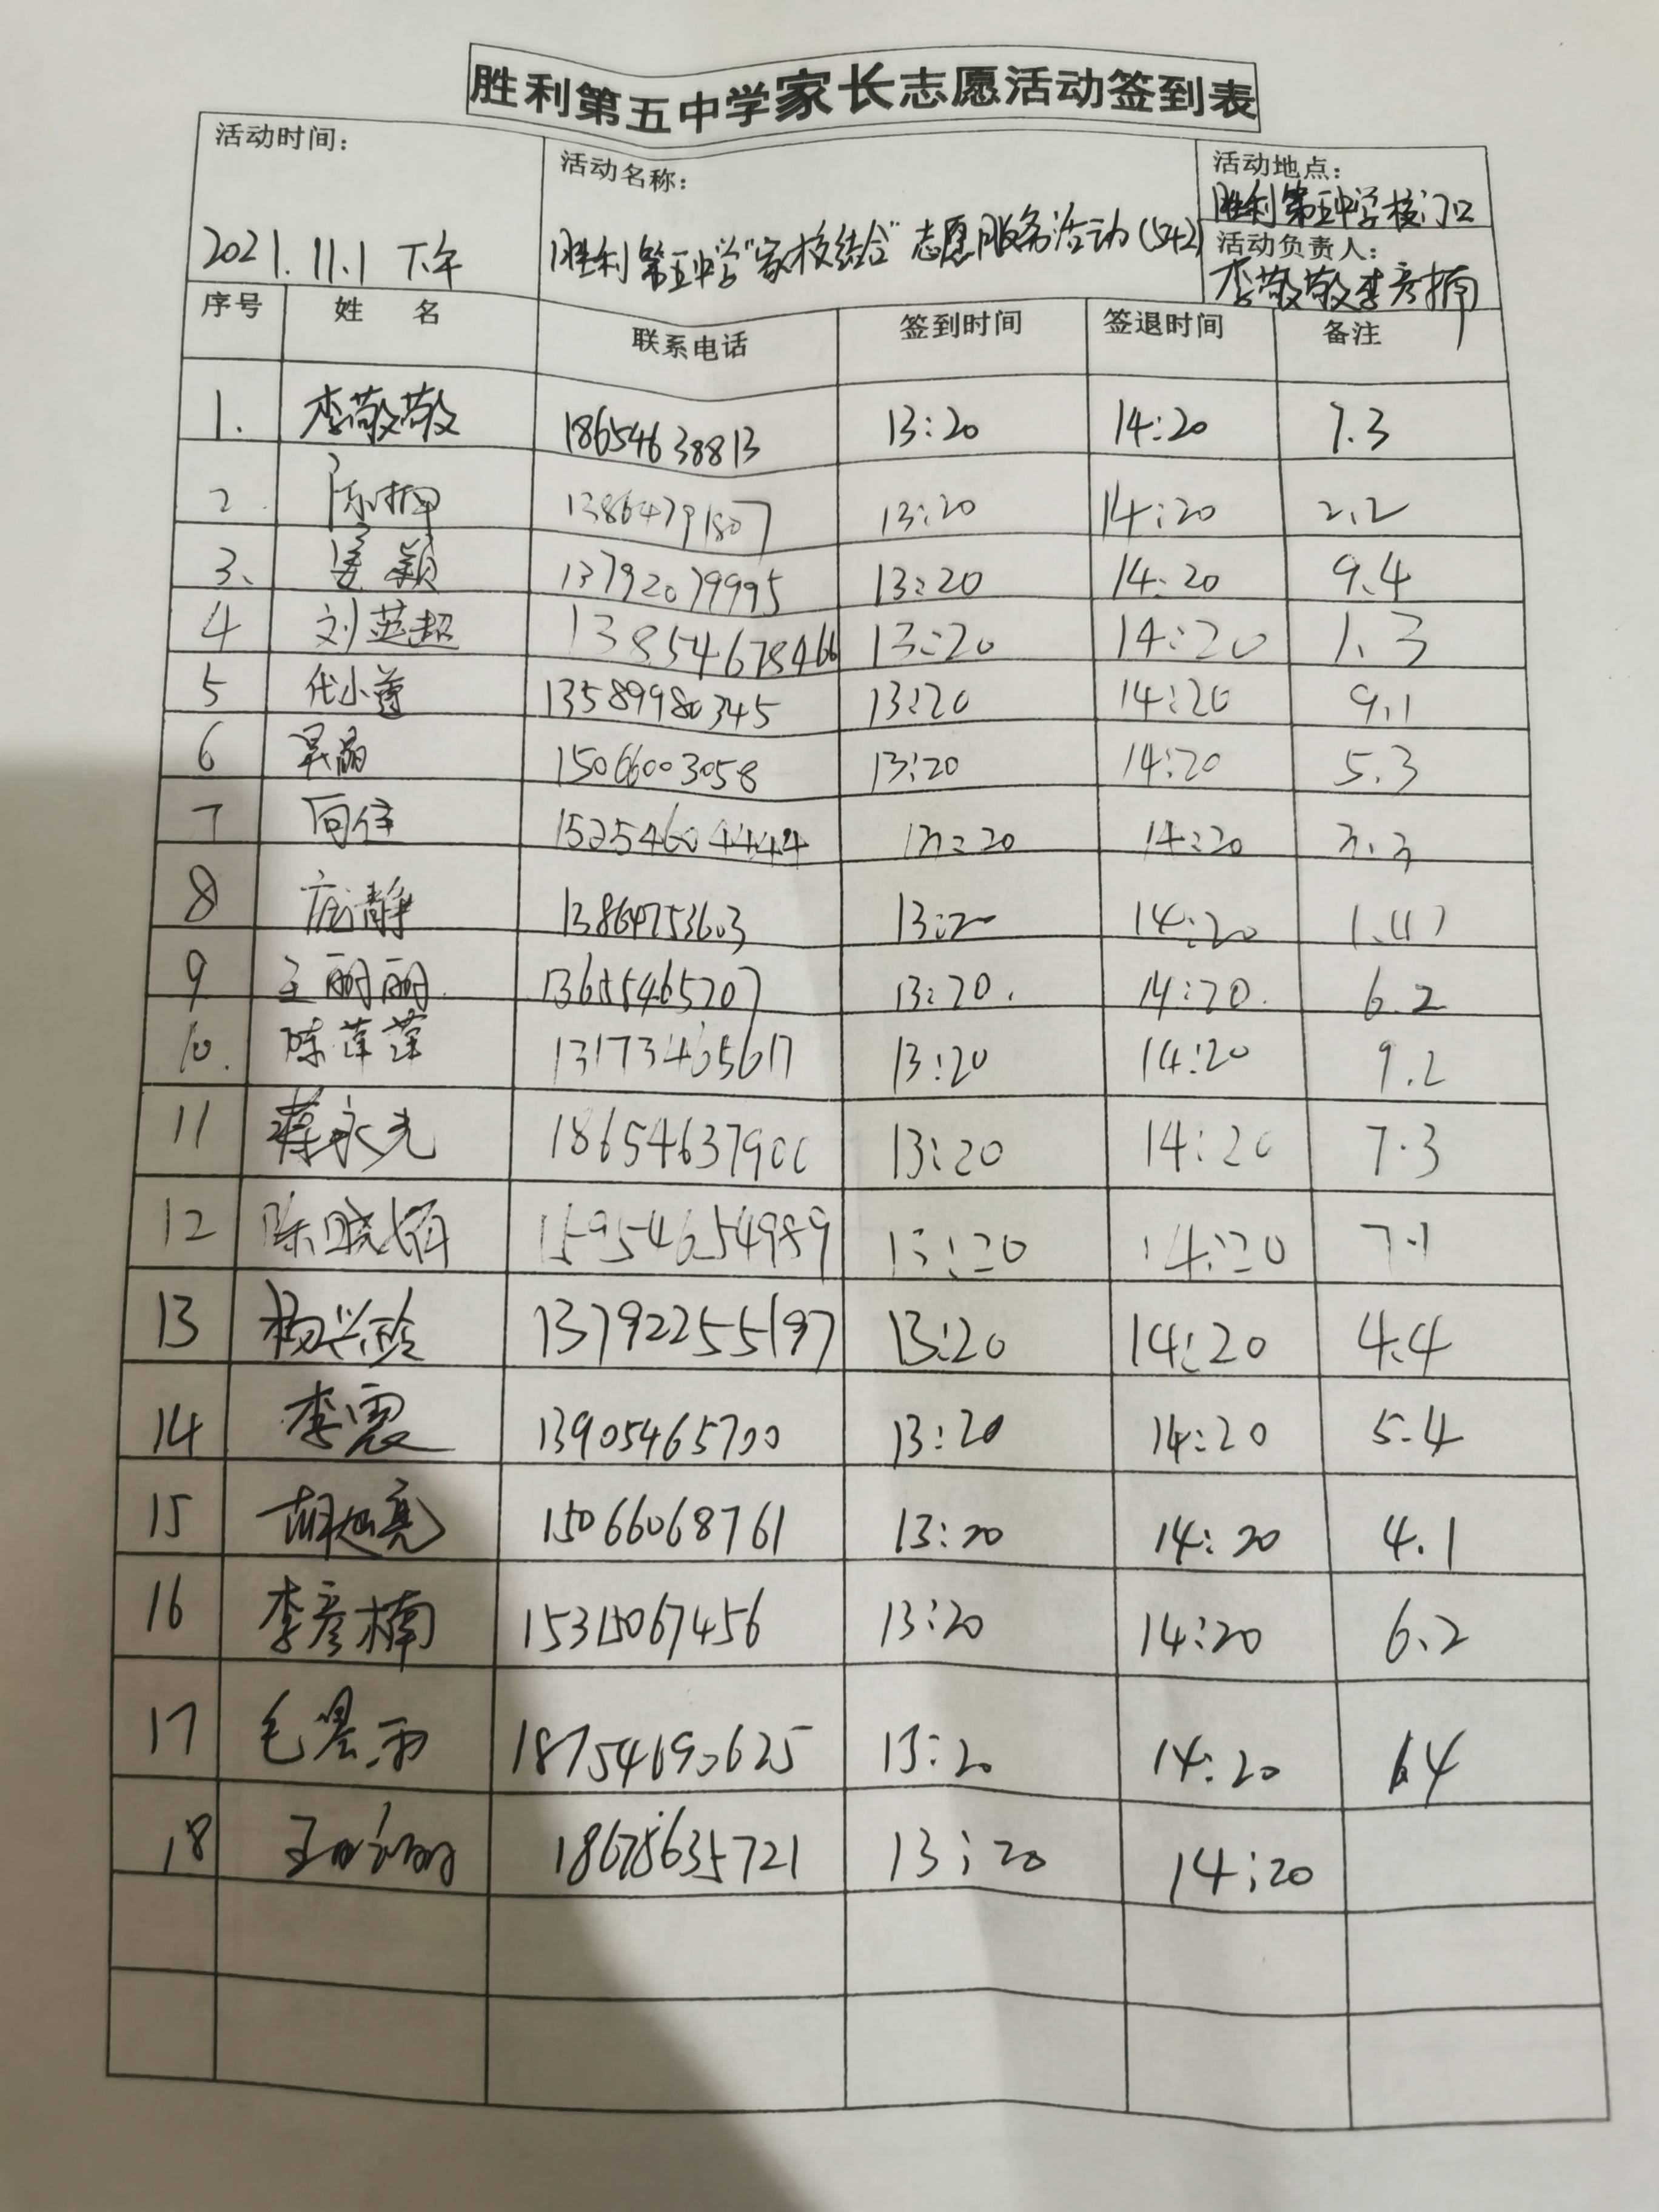 胜利第五中学家长志愿活动签到表
活动时间：
2021.11.1 下午
活动名称：
胜利第五中学“家校结合”志愿服务活动(542)
活动地点：
胜利第五中学校门口
活动负责人：
李敬敬李彦楠
序号 姓 名 联系电话 签到时间 签退时间 备注
1. 李敬敬 18654638813 13:20 14:20 7.3
2. 13864791807 13:20 14:20 2.2
3、 姜颖 13792079995 13:20 14:20 9.4
4 刘英超 13:20 14:20 1.3
5 代小尊 13589980345 13:20 14:20 9.1
6 吴晶 15066003058 13:20 14:20 5.3
7 15254604444 13:20 14:20 3.3
8 静 13864753603 13:20 14:20
9 王丽丽 13:20. 14:20. 6.2
10. 陈萍萍 13173465617 13:20 14:20 9.2
11 蒋永光 18654637900 13:20 14:20 7.3
12 陈晓娟 15954654989 13:20 14:20 7.1
13 杨兴玲 13792255197 13:20 14:20 4.4
14 李震 13905465700 13:20 14:20 5.4
15 胡旭亮 15066068761 13:20 14:20 4.1
16 李彦楠 15315067456 13:20 14:20 6.2
17 毛 18754690625 13:20 14:20
18 王 18678635721 13:20 14:20